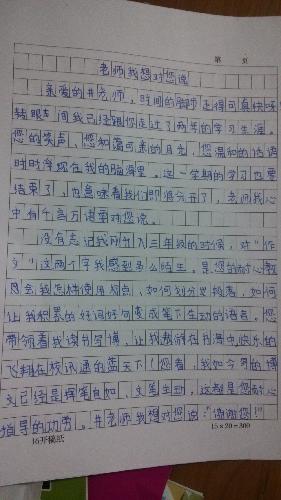 第 页
老师我想对您说
亲爱的井老师，时间的脚步走得可真快呀！
转眼间我已经跟您走过了两年的学习生涯。
您的笑声、您和蔼可亲的目光，您温和的话语
时时浮现在我的脑海里。这一学期的学习也要
结束了，也意味着我们即将分开了，老师我心
中有千言万语要对您说。
没有忘记我刚升入三年级的时候，对“作
文”这两个字我感到多么陌生。是您的耐心教
会我怎样使用标点、如何划分段落，如何
让我积累的好词好句变成笔下生动的语言。您
带领着我读书写博，让我翱翔在书海中快乐的
飞翔在校讯通的蓝天下！您看，我如今的博
文已经是挥笔自如、文笔生动，这都是您耐心
指导的功劳。井老师我想对您说：“谢谢您！”
16开稿纸
15×20=300